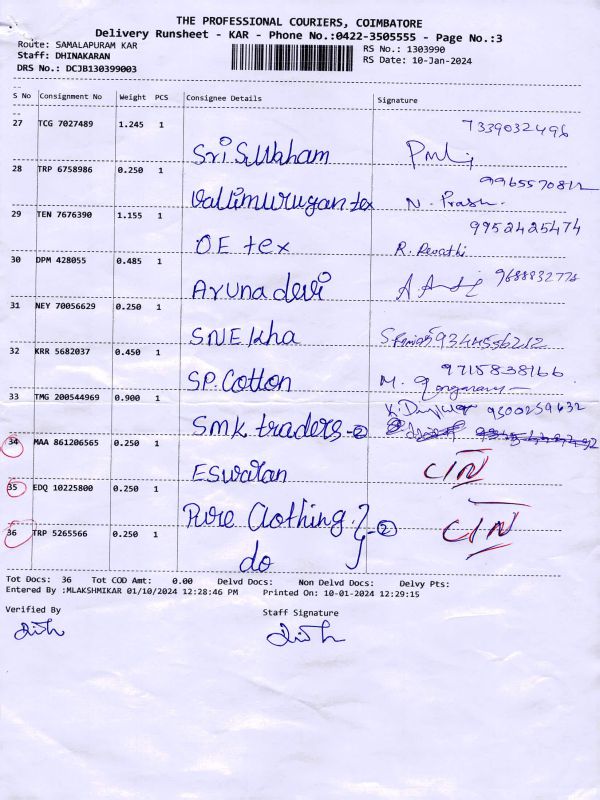 THE PROFESSIONAL COURIERS, COIMBATORE
Delivery Runsheet - KAR - Phone No.:0422-3505555 - Page No.:3
Route: SAMALAPURAM KAR RS No.: 1303990
Staff: DHINAKARAN RS Date: 10-Jan-2024
DRS No.: DCJB130399003
S No Consignment No Weight PCS Consignee Details Signature
27 TCG 7027489 1.245 1 7339032496
Sri Subham
28 TRP 6758986 0.250 1 9965570812
Vallimurugan tex N. Prash.
29 TEN 7676390 1.155 1 9952425474
OE tex R. Revathi
30 DPM 428055 0.485 1
Aruna devi 9688832778
31 NEY 70056629 0.250 1
SNEKha 9344556212
32 KRR 5682037 0.450 1 9715838166
SP. Cotton M.
33 TMG 200544969 0.900 1 9300259632
Smk traders - 2
34 MAA 861206565 0.250 1
Eswaran CIN
35 EDQ 10225800 0.250 1
Pure Clothing - 2 CIN
36 TRP 5265566 0.250 1
do
Tot Docs: 36 Tot COD Amt: 0.00 Delvd Docs: Non Delvd Docs: Delvy Pts:
Entered By :MLAKSHMIKAR 01/10/2024 12:28:46 PM Printed On: 10-01-2024 12:29:15
Verified By Staff Signature